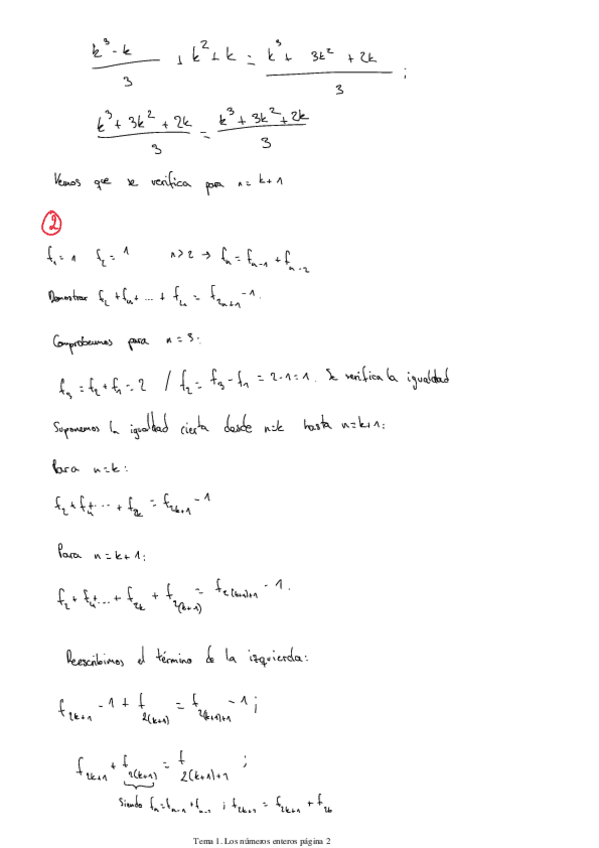 k³-k/3 + k²+k = k³+ 3k² + 2k/3 ;
k³+3k²+2k/3 = k³+3k²+2k/3
Vemos que se verifica para n=k+1
2
f₁=1 f₂=1 n>2 → fₙ=fₙ₋₁+fₙ₋₂
Demostrar f₂+f₄+...+f₂ₙ=f₂ₙ₊₁-1.
Comprobamos para n=3:
f₃=f₂+f₁=2 / f₂=f₃-f₁=2-1=1. Se verifica la igualdad
Suponemos la igualdad cierta desde n=k hasta n=k+1:
Para n=k:
f₂+f₄+...+f₂ₖ=f₂ₖ₊₁-1
Para n=k+1:
f₂+f₄+...+f₂ₖ+f₂₍ₖ₊₁₎=f₂₍ₖ₊₁₎₊₁-1.
Reescribimos el término de la izquierda:
f₂ₖ₊₁-1+f₂₍ₖ₊₁₎=f₂₍ₖ₊₁₎₊₁-1;
f₂ₖ₊₁+f₂₍ₖ₊₁₎=f₂₍ₖ₊₁₎₊₁;
Siendo fₙ=fₙ₋₁+fₙ₋₂ ; f₂ₖ₊₂=f₂ₖ₊₁+f₂ₖ
Tema 1. Los números enteros página 2